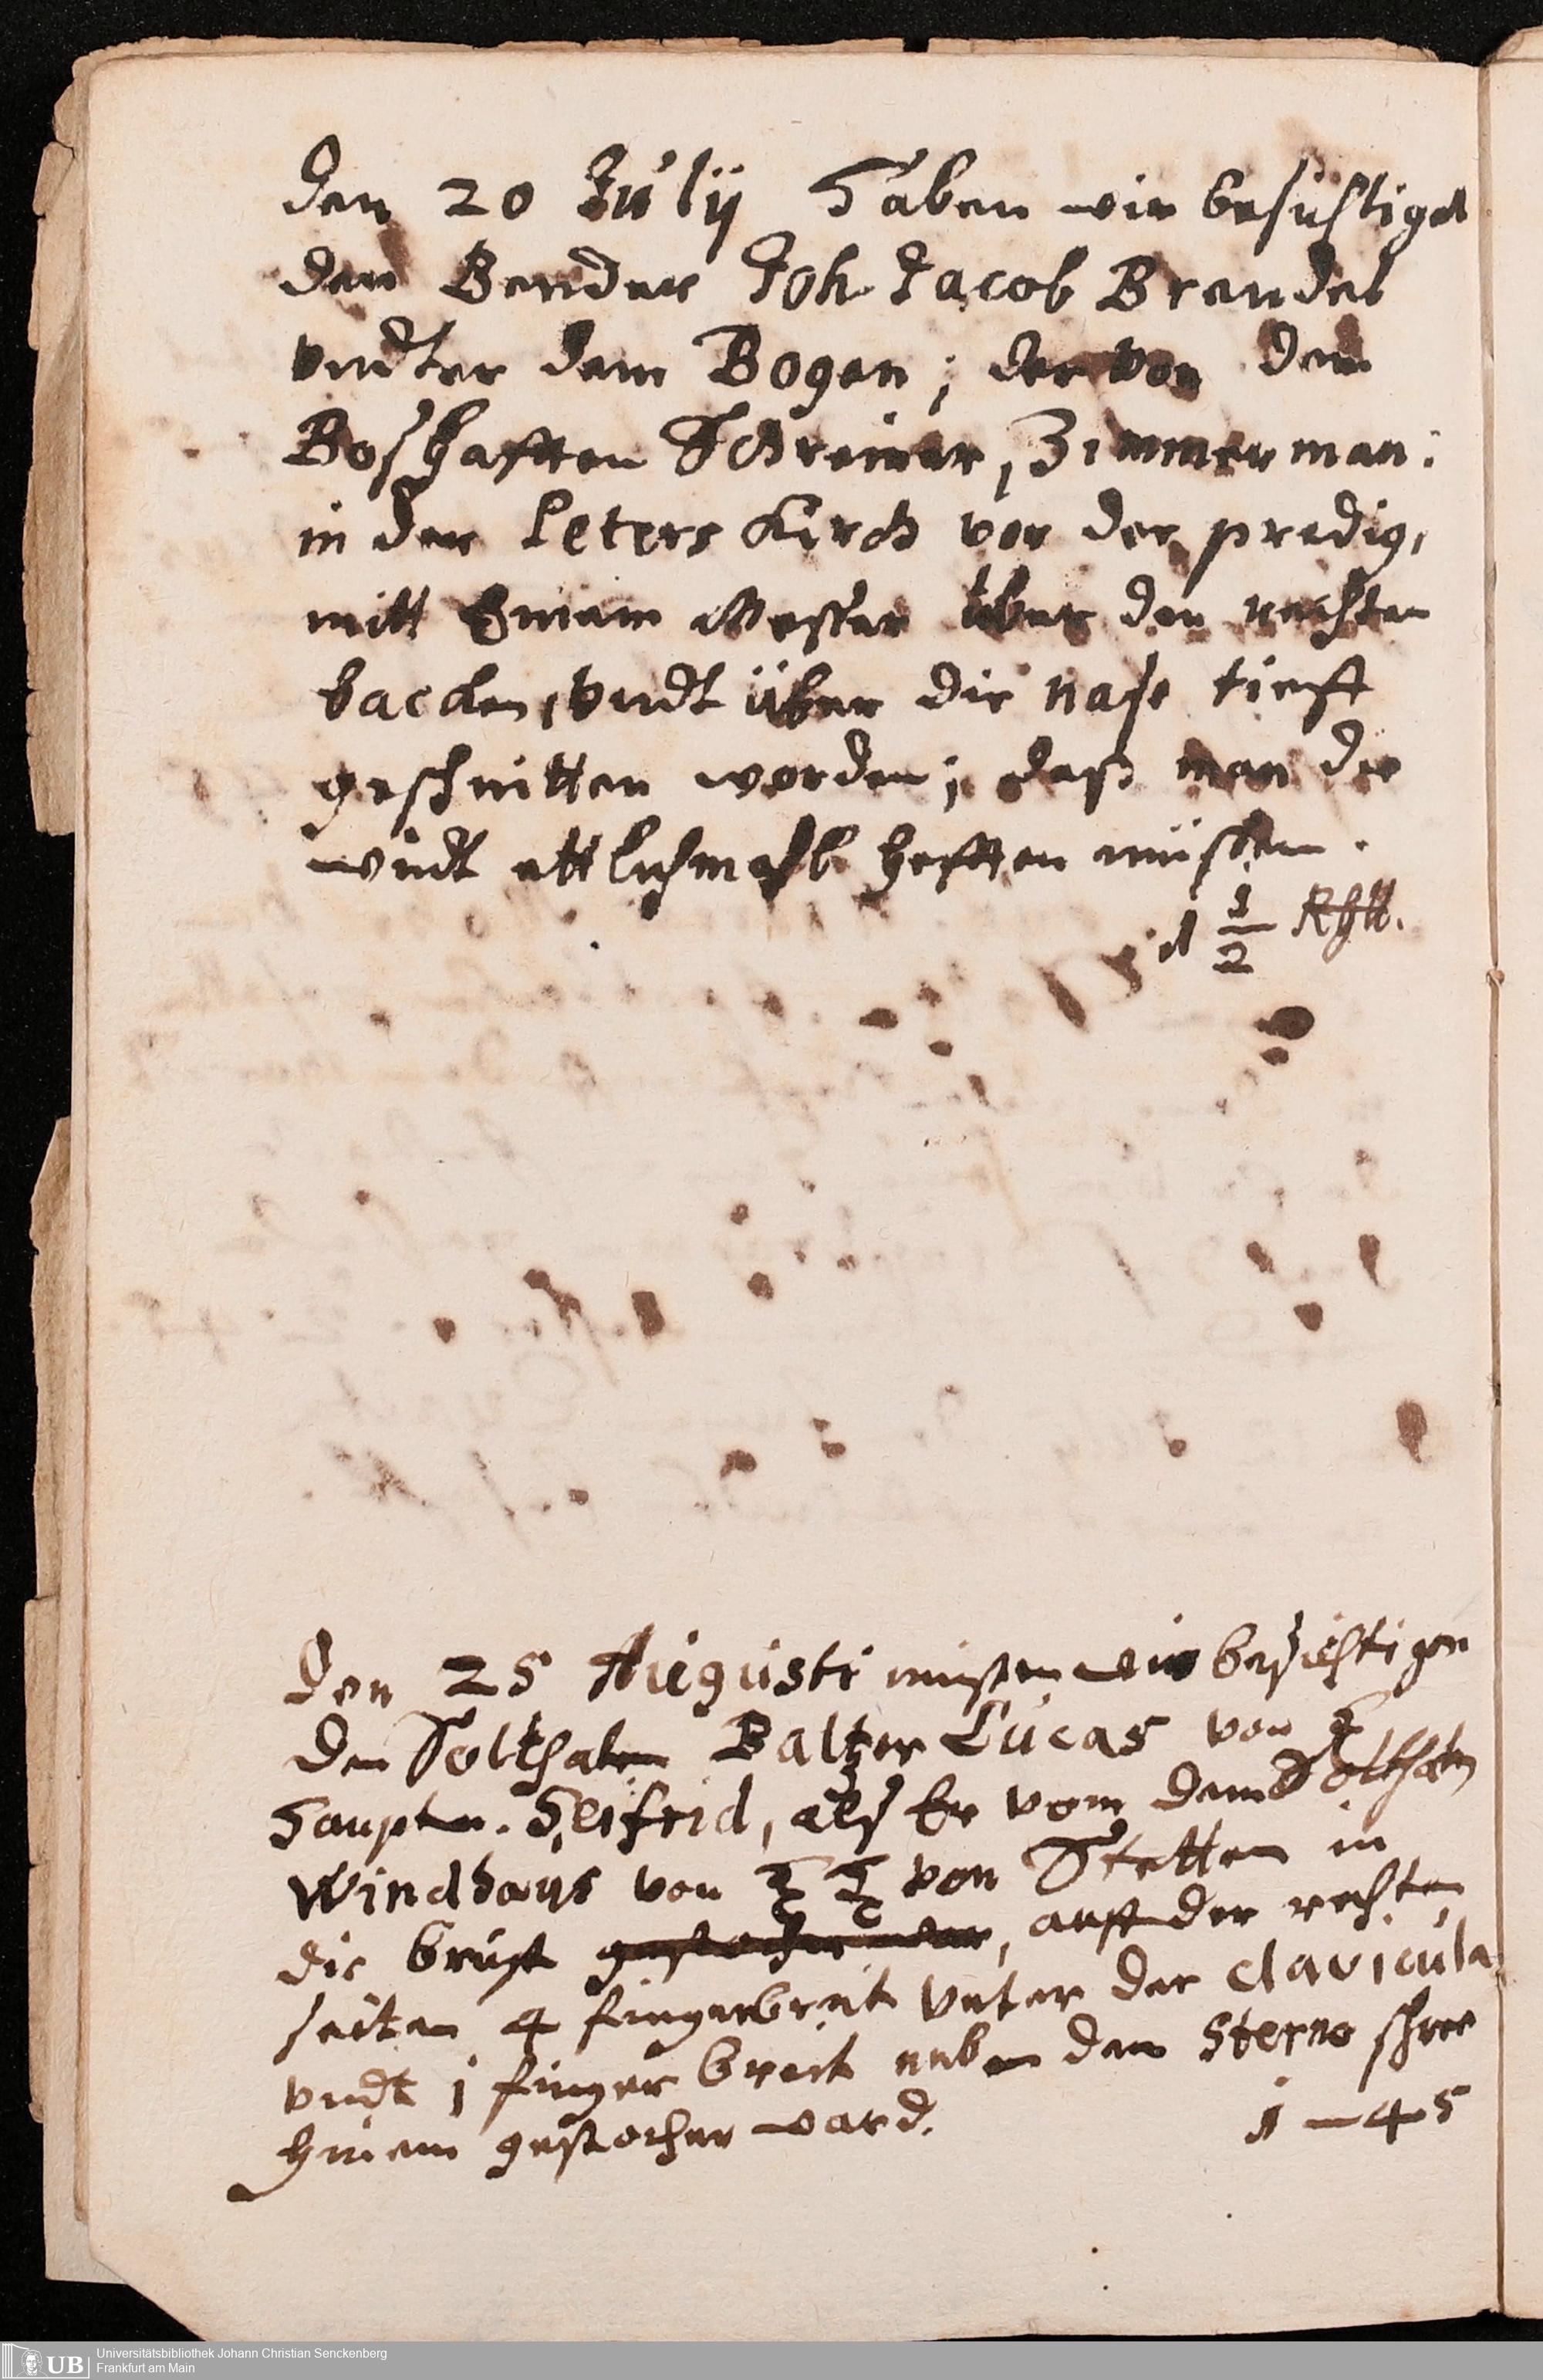 den 20 Julÿ Haben wir besichtiget
den Bender Joh. Jacob Brendel
vndter dem Bogen; der von dem
Boßhafften Schreiner, Zimmerman:
in der Peters Kirch vor der predig,
mitt Einem Messer über den rechten
backen, vndt über die nase tieff
geschnitten worden; daß man die
wudt ettlichmahl hefften müssen.
1 1/2 Rthl.
Den 25 Augusti musten wir besichtigen
den Solthaten Baltzer Lucas von H
Hauptm. Seifrid, alß Er vom dem Solthaten
Windhaus von H H von Stetten in
die brust gestochen war, auff der rechten
seiten 4 fingerbreit vnter der clavicula
vndt j finger breit neben dem Sterno
hinein gestochen ward. j — 45
Universitätsbibliothek Johann Christian Senckenberg
Frankfurt am Main
UB